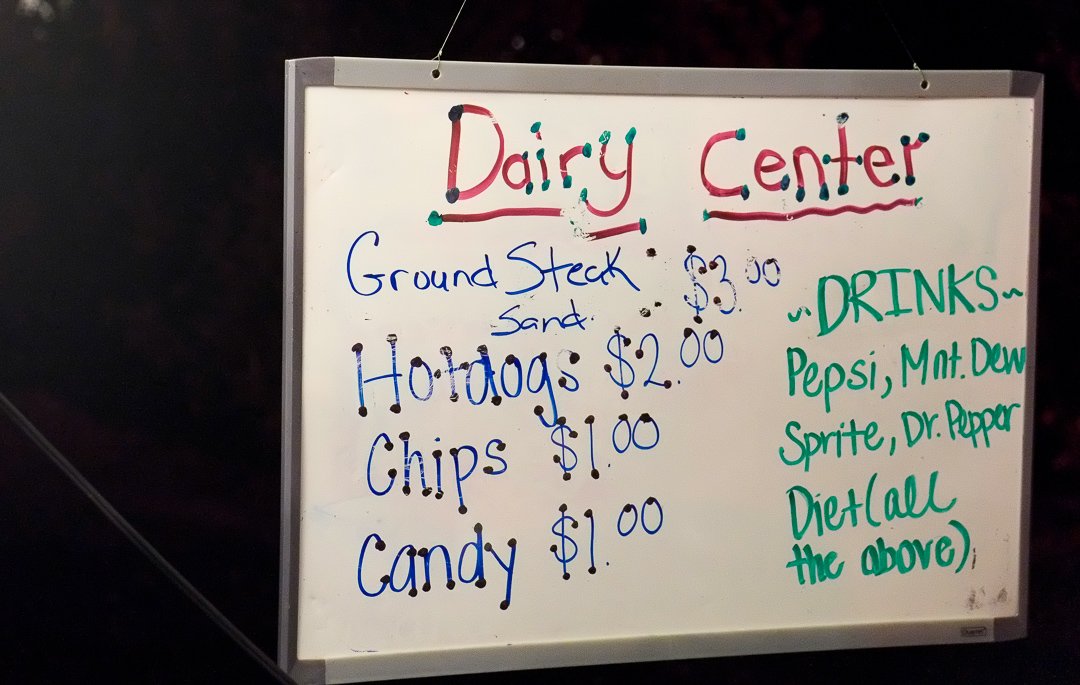 Dairy Center
Ground Steak $3.00
Sand.
Hotdogs $2.00
Chips $1.00
Candy $1.00
~DRINKS~
Pepsi, Mnt. Dew
Sprite, Dr. Pepper
Diet (all
the above)
Quartet